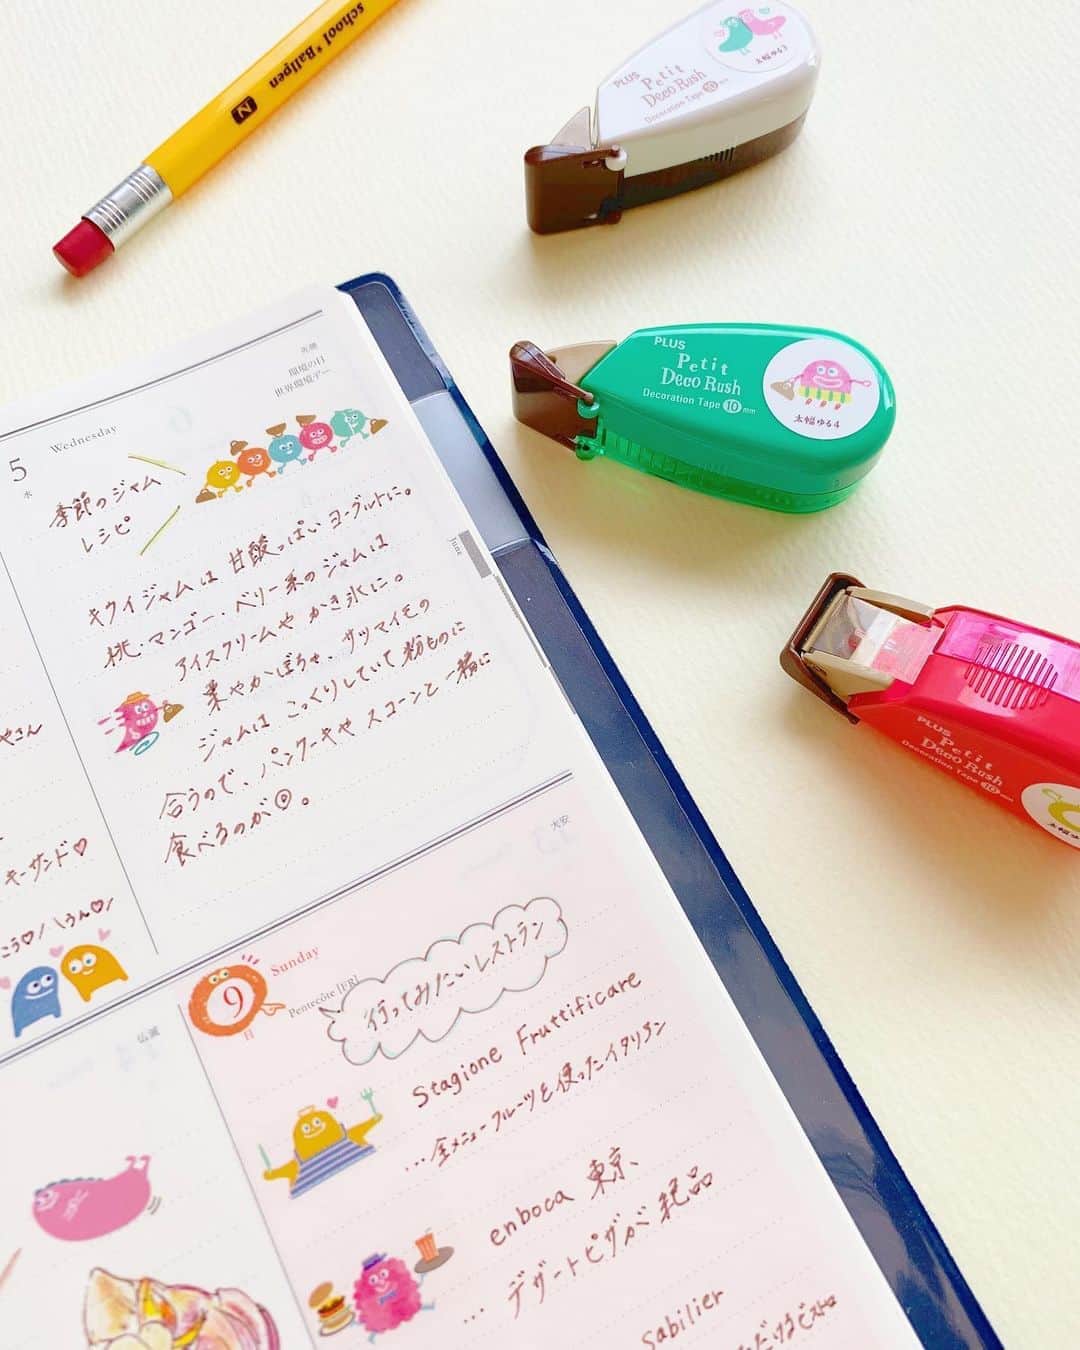 school*Ballpen
N
PLUS
Petit
Deco Rush
Decoration Tape 10 mm
太幅ゆる3
PLUS
Petit
Deco Rush
Decoration Tape 10 mm
太幅ゆる4
PLUS
Petit
Deco Rush
Decoration Tape 10 mm
太幅
先勝
環境の日
世界環境デー
5
水
Wednesday
季節のジャム
レシピ
キウイジャムは 甘酸っぱい ヨーグルトに。
桃・マンゴー・ベリー系のジャムは
アイスクリームや かき氷に。
栗やかぼちゃ、サツマイモの
ジャムは こっくりしていて 粉ものに
合うので、パンケーキや スコーンと 一緒に
食べるのが◎。
June
やさん
キーサンド♡
こう♡/ \うん♡/
大安
9
日
Sunday
Pentecôte [FR]
行ってみたいレストラン
Stagione Fruttificare
...全メニューフルーツを使ったイタリアン
enboca 東京
... デザートピザが 絶品
sabilier
ビストロ
仏滅